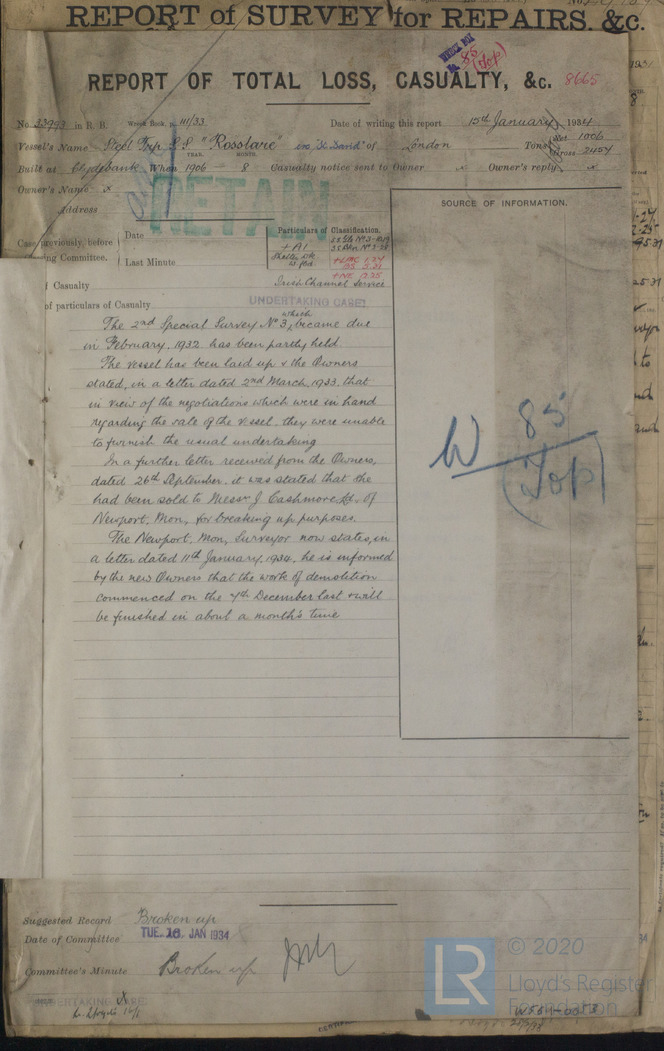 REPORT of SURVEY for REPAIRS, &c.
INDEX BOX
No. 85 (Top)
REPORT OF TOTAL LOSS, CASUALTY, &c. 8665
No. 33993 in R. B. Wreck Book, p. 111/33 Date of writing this report 15th January 1934
Vessel's Name Steel Trip S.S. "Rosslare" ex "St David" of London Tons Net 1006
Gross 2457
YEAR. MONTH.
Built at Clydebank When 1906 - 8 Casualty notice sent to Owner x Owner's reply x
Owner's Name x
Address
RETAIN
SOURCE OF INFORMATION.
Case previously before
Classing Committee.
Date
Last Minute
Particulars of Classification.
+A1
Shelter dk
Irish Channel Service
f Casualty
of particulars of Casualty
UNDERTAKING CASE
The 2nd Special Survey No 3, which became due
in February, 1932 has been partly held.
The vessel has been laid up & the Owners
stated, in a letter dated 2nd March, 1933, that
in view of the negotiations which were in hand
regarding the sale of the vessel, they were unable
to furnish the usual undertaking
In a further letter received from the Owners,
dated 26th September, it was stated that she
had been sold to Messrs J. Cashmore, Ld. of
Newport, Mon, for breaking up purposes.
The Newport, Mon, Surveyor now states, in
a letter dated 11th January, 1934, he is informed
by the new Owners that the work of demolition
commenced on the 7th December last & will
be finished in about a month's time
W 85
(Top)
Suggested Record Broken up
Date of Committee TUE. 16 JAN 1934
Committee's Minute Broken up
UNDERTAKING CASE
LR
© 2020
Lloyd's Register
Foundation
W581-0053